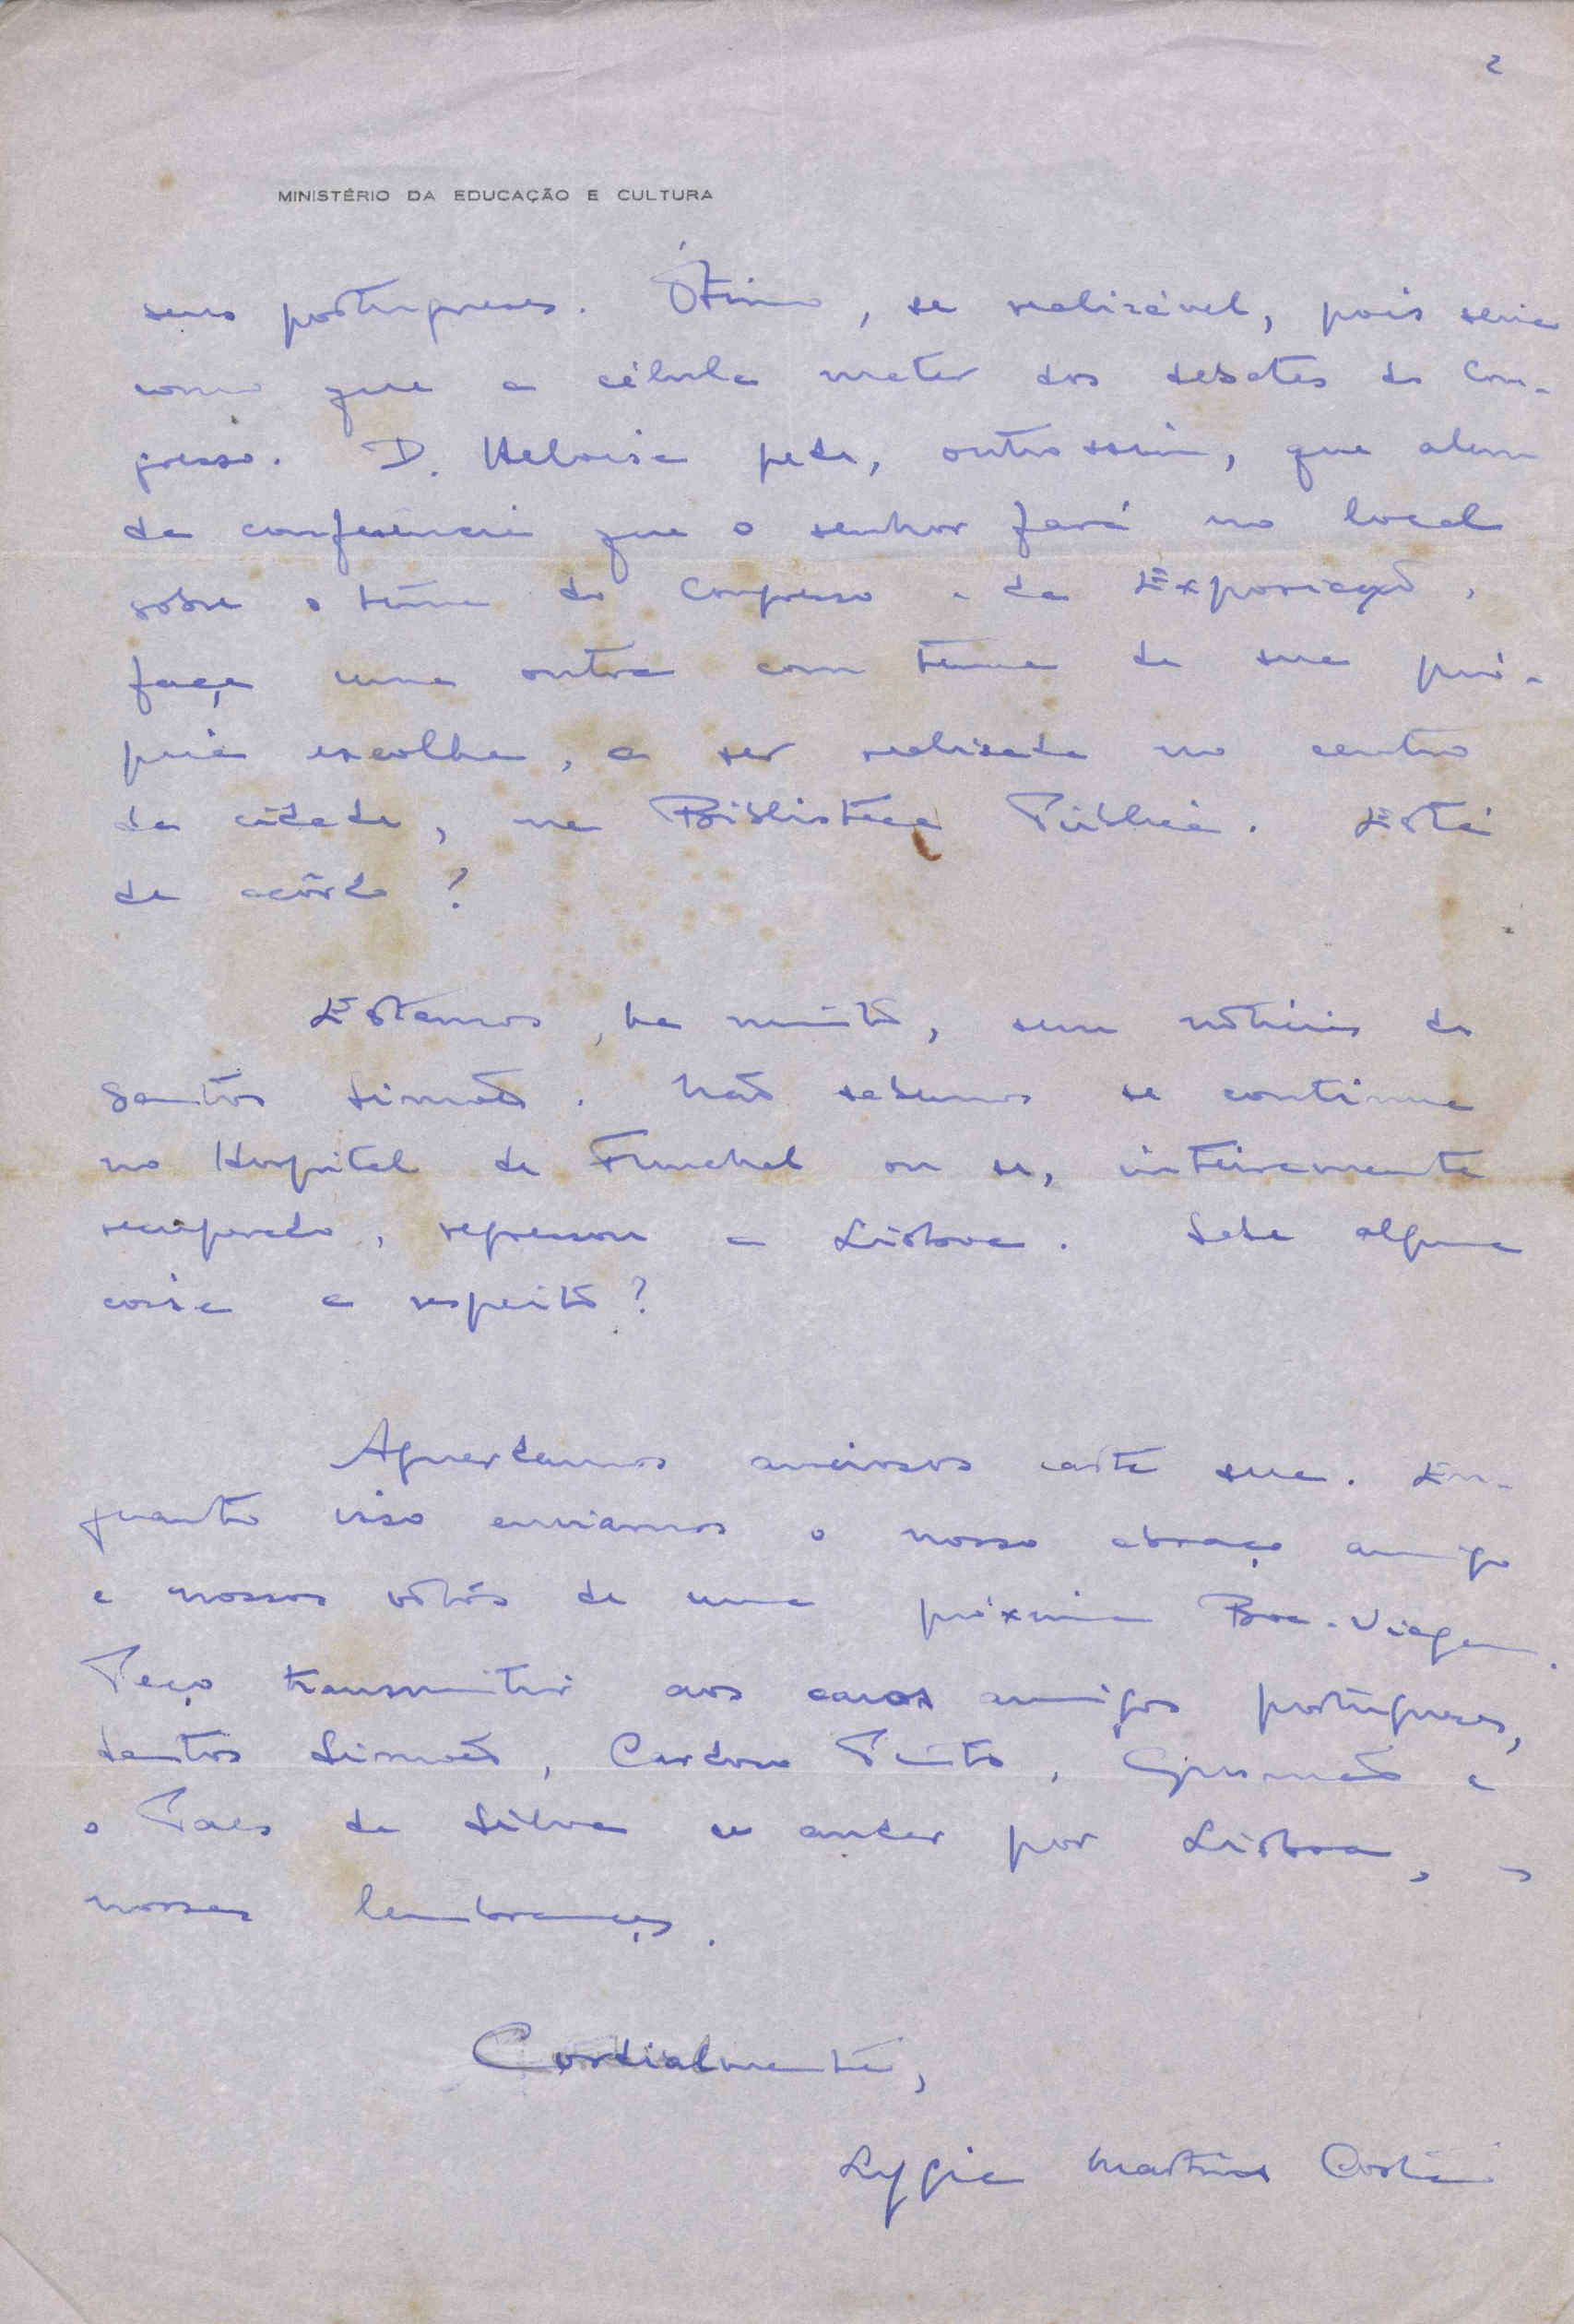 2
MINISTÉRIO DA EDUCAÇÃO E CULTURA
seus portugueses. Ótimo, se realizável, pois seria
como que a célula mater dos debates do Con-
gresso. D. Heloisa pede, outrossim, que alem
da conferência que o senhor fará no local
sobre o tema do Congresso e da Exposição,
faça uma outra com tema de sua pró-
pria escolha, a ser realizada no centro
da cidade, na Biblioteca Pública. Está
de acôrdo?
Estamos, ha muito, sem notícias do
Santos Simões. Não sabemos se continua
no Hospital de Funchal ou se, inteiramente
recuperado, regressou a Lisboa. Sabe alguma
coisa a respeito?
Aguardamos ansiosos carta sua. En-
quanto isso enviamos o nosso abraço amigo
e nossos votos de uma próxima Boa-Viagem.
Peço transmitir aos caros amigos portugueses,
Santos Simões, Cardoso Pinto, Gusmão e
o Paes da Silva se andar por Lisboa, as
nossas lembranças.
Cordialmente,
Lygia Martins Costa